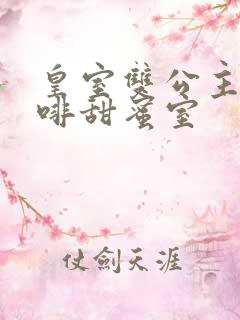 皇室雙公主
啡甜蜜室
仗劍天涯